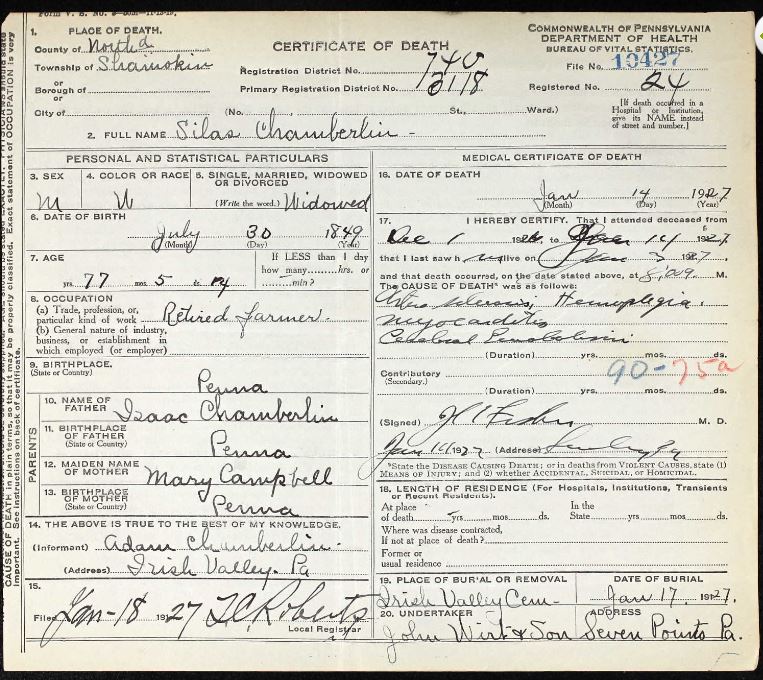 Form V. S. No. 5
CERTIFICATE OF DEATH
COMMONWEALTH OF PENNSYLVANIA
DEPARTMENT OF HEALTH
BUREAU OF VITAL STATISTICS.
1. PLACE OF DEATH.
County of North'd
Township of Shamokin
or
Borough of
or
City of (No. St., Ward.)
Registration District No. 740
Primary Registration District No. 2118
File No. 10427
Registered No. 24
[If death occurred in a
Hospital or Institution,
give its NAME instead
of street and number.]
2. FULL NAME Silas Chamberlin
PERSONAL AND STATISTICAL PARTICULARS
3. SEX
M
4. COLOR OR RACE
W
5. SINGLE, MARRIED, WIDOWED
OR DIVORCED
(Write the word.) Widowed
6. DATE OF BIRTH
July 30 1849
(Month) (Day) (Year)
7. AGE
77 yrs. 5 mos. 14 ds.
If LESS than 1 day
how many hrs. or
min?
8. OCCUPATION
(a) Trade, profession, or
particular kind of work Retired farmer
(b) General nature of industry,
business, or establishment in
which employed (or employer)
9. BIRTHPLACE,
(State or Country)
Penna
PARENTS
10. NAME OF
FATHER Isaac Chamberlin
11. BIRTHPLACE
OF FATHER
(State or Country) Penna
12. MAIDEN NAME
OF MOTHER Mary Campbell
13. BIRTHPLACE
OF MOTHER
(State or Country) Penna
14. THE ABOVE IS TRUE TO THE BEST OF MY KNOWLEDGE.
(Informant) Adam Chamberlin
(Address) Irish Valley. Pa
15.
Filed Jan-18 1927 T C Roberts
Local Registrar
MEDICAL CERTIFICATE OF DEATH
16. DATE OF DEATH
Jan 14 1927
(Month) (Day) (Year)
17. I HEREBY CERTIFY, That I attended deceased from
Dec 1 1926, to 14 1927,
that I last saw h alive on 1927,
and that death occurred, on the date stated above, at M.
The CAUSE OF DEATH* was as follows:
Hemiplegia
Myocarditis
Cerebral Embolism
(Duration) yrs. mos. ds.
Contributory
(Secondary.)
90-75a
(Duration) yrs. mos. ds.
(Signed) M. D.
Jan 14 1927 (Address)
*State the DISEASE CAUSING DEATH; or in deaths from VIOLENT CAUSES, state (1)
MEANS OF INJURY; and (2) whether ACCIDENTAL, SUICIDAL, or HOMICIDAL.
18. LENGTH OF RESIDENCE (For Hospitals, Institutions, Transients
or Recent Residents).
At place In the
of death yrs. mos. ds. State yrs. mos. ds.
Where was disease contracted,
If not at place of death?
Former or
usual residence
19. PLACE OF BURIAL OR REMOVAL
Irish Valley Cem-
DATE OF BURIAL
Jan 17 1927.
20. UNDERTAKER ADDRESS
John Wirt & Son Seven Points Pa.
CAUSE OF DEATH in plain terms, so that it may be properly classified. Exact statement of OCCUPATION is very
important. See instructions on back of certificate.